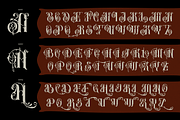 A
ABCDEFGHIJKLMN
OPQRSTUVWXYZ
A
ABCDEFGHIJKLMN
OPQRSTUVWXYZ
A
ABCDEFGHIJKLMN
OPQRSTUVWXYZ